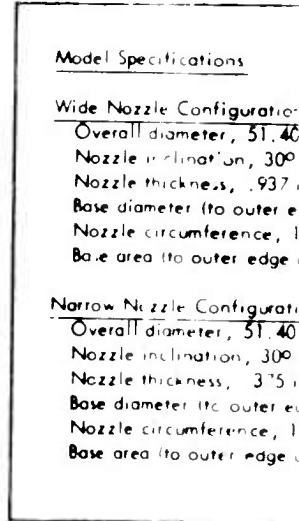 Model Specifications
Wide Nozzle Configuratio
Overall diameter, 51.40
Nozzle inclination, 30°
Nozzle thickness, .937
Base diameter (to outer e
Nozzle circumference, 1
Base area (to outer edge
Narrow Nozzle Configurati
Overall diameter, 51.40
Nozzle inclination, 30°
Nozzle thickness,
Base diameter (to outer e
Nozzle circumference, 1
Base area (to outer edge